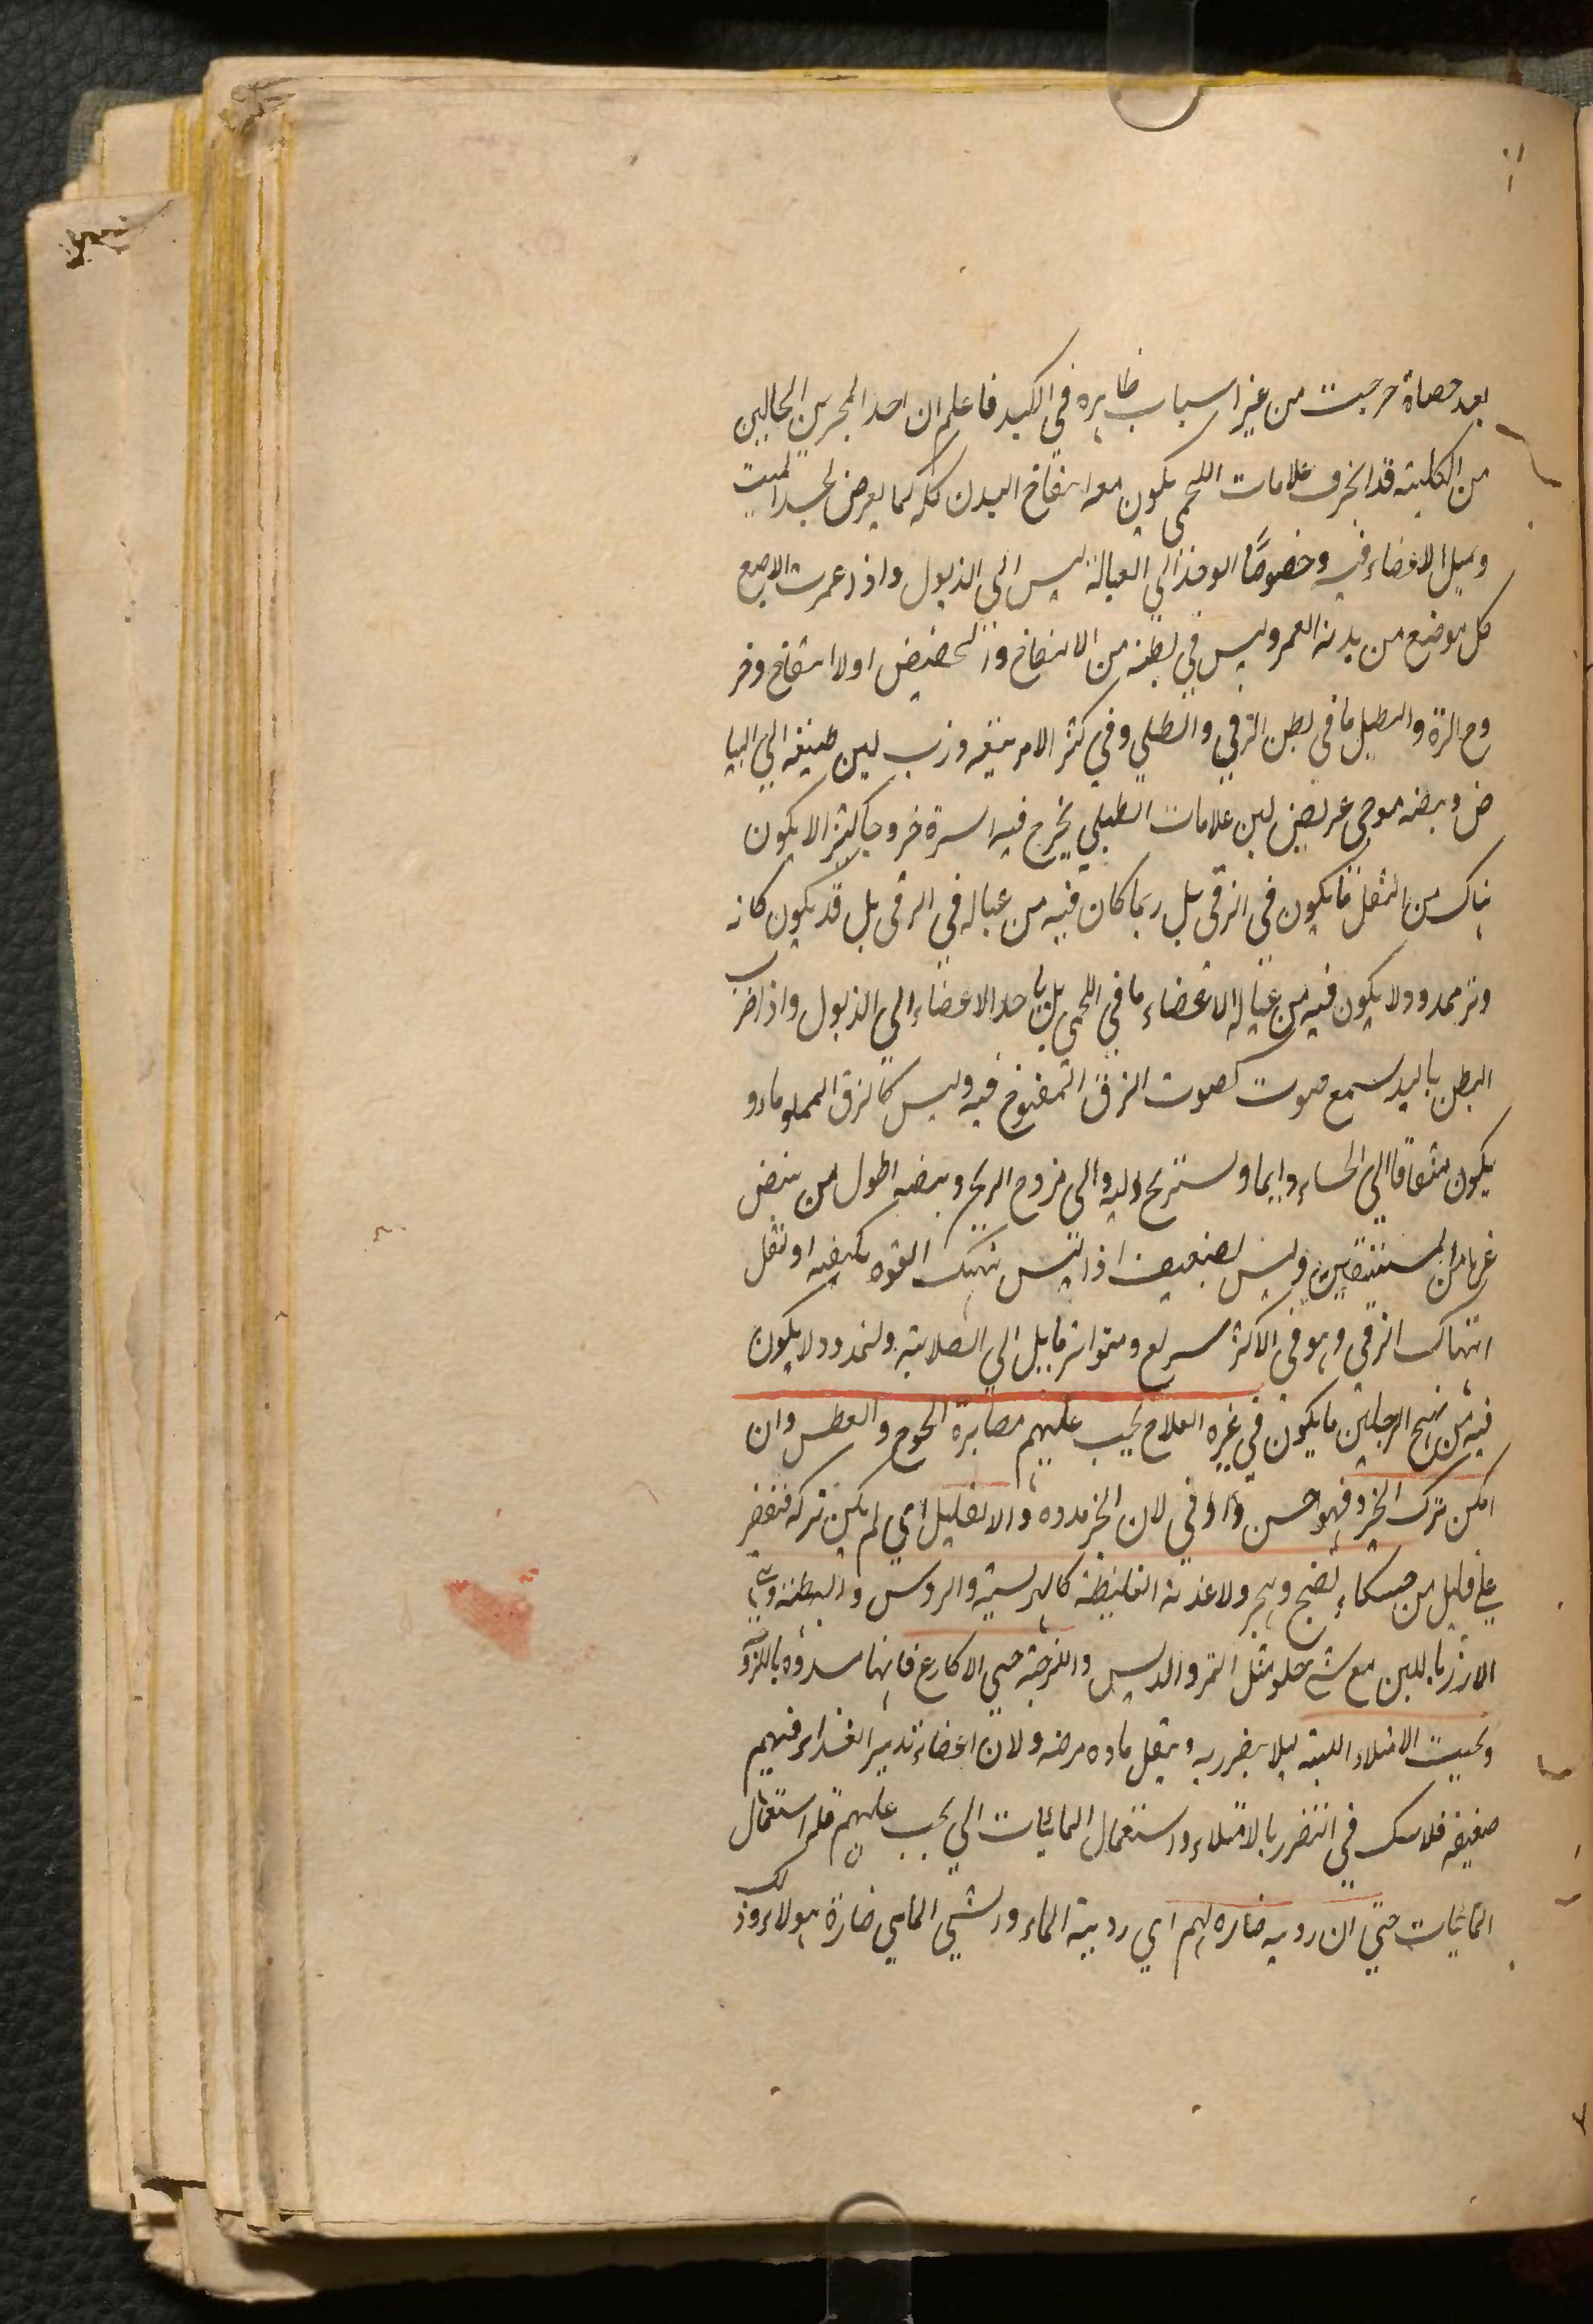 بعد حصاة خرجت من غير اسباب ظاهره في الكبد فاعلم ان احد المجرين الجالبين
من الكلية قد انخرق علامات اللحمي يكون معه انتفاخ البدن كله كما يعرض لجسد الميت
وتميل الاعضاء فيه وخصوصًا الوجه الي العبالة ليس الي الذبول واذا غمرت الاصبع
كل موضع من بدنه انغمر وليس في بطنه من الانتفاخ والخضيض اولا انتفاخ وخر
وج السرة والبطيل ما في بطن الزقي والطبلي وفي اكثر الامر يتبعه ذرب لين طبيعه الي البيا
ض ونبضه موجي عريض لين علامات الطبلي يخرج فيه السرة خروجا كثيرا لا يكون
هناك من الثقل ما يكون في الزقي بل ربما كان فيه من عباله في الزقي بل قد يكون كانه
وتر ممدود ولا يكون فيه من عباله الاعضاء ما في اللحمي بل ياخذ الاعضاء الي الذبول واذا ضرب
البطن باليد سمع صوت كصوت الزق المنفوخ فيه وليس كالزق المملو ماء و
يكون مشتاقا الي الجشاء دايما ويستريح اليه والي خروج الريح ونبضه اطول من نبض
غيره من المستسقين وليس بضعيف اذ ليس ينهك القوه بكيفيه او ثقل
انتهاك الزقي وهو في الاكثر سريع ومتواتر مايل الي الصلابة والتمدد ولا يكون
فيه من تهيج الرجلين ما يكون في غيره العلاج يجب عليهم مصابرة الجوع والعطش وان
امكن ترك الخبز فهو احسن واوفي لان الخبز مدده والا تقليل اي لم يكن تركه فتقتصر
علي قليل من خشكار نضج وهجر ولاغذية الغليظة كالهريسة والروس والبطنة و
الارز باللبن مع شي حلو مثل التمر والدبس واللزجة حتي الاكارع فانها مسدوده باللزو
وتجنب الامتلاء البتة ليلا يضر به ويثقل مادة مرضه ولان اعضاء تدبير الغذاء فيهم
ضعيفه فلا شك في التضرر بالامتلاء واستعمال المائيات التي يجب عليهم قلة استعمال
المائيات حتي ان رويه ضاره لهم اي رويية الماء والشي المايي ضارة لهولاء وذلك